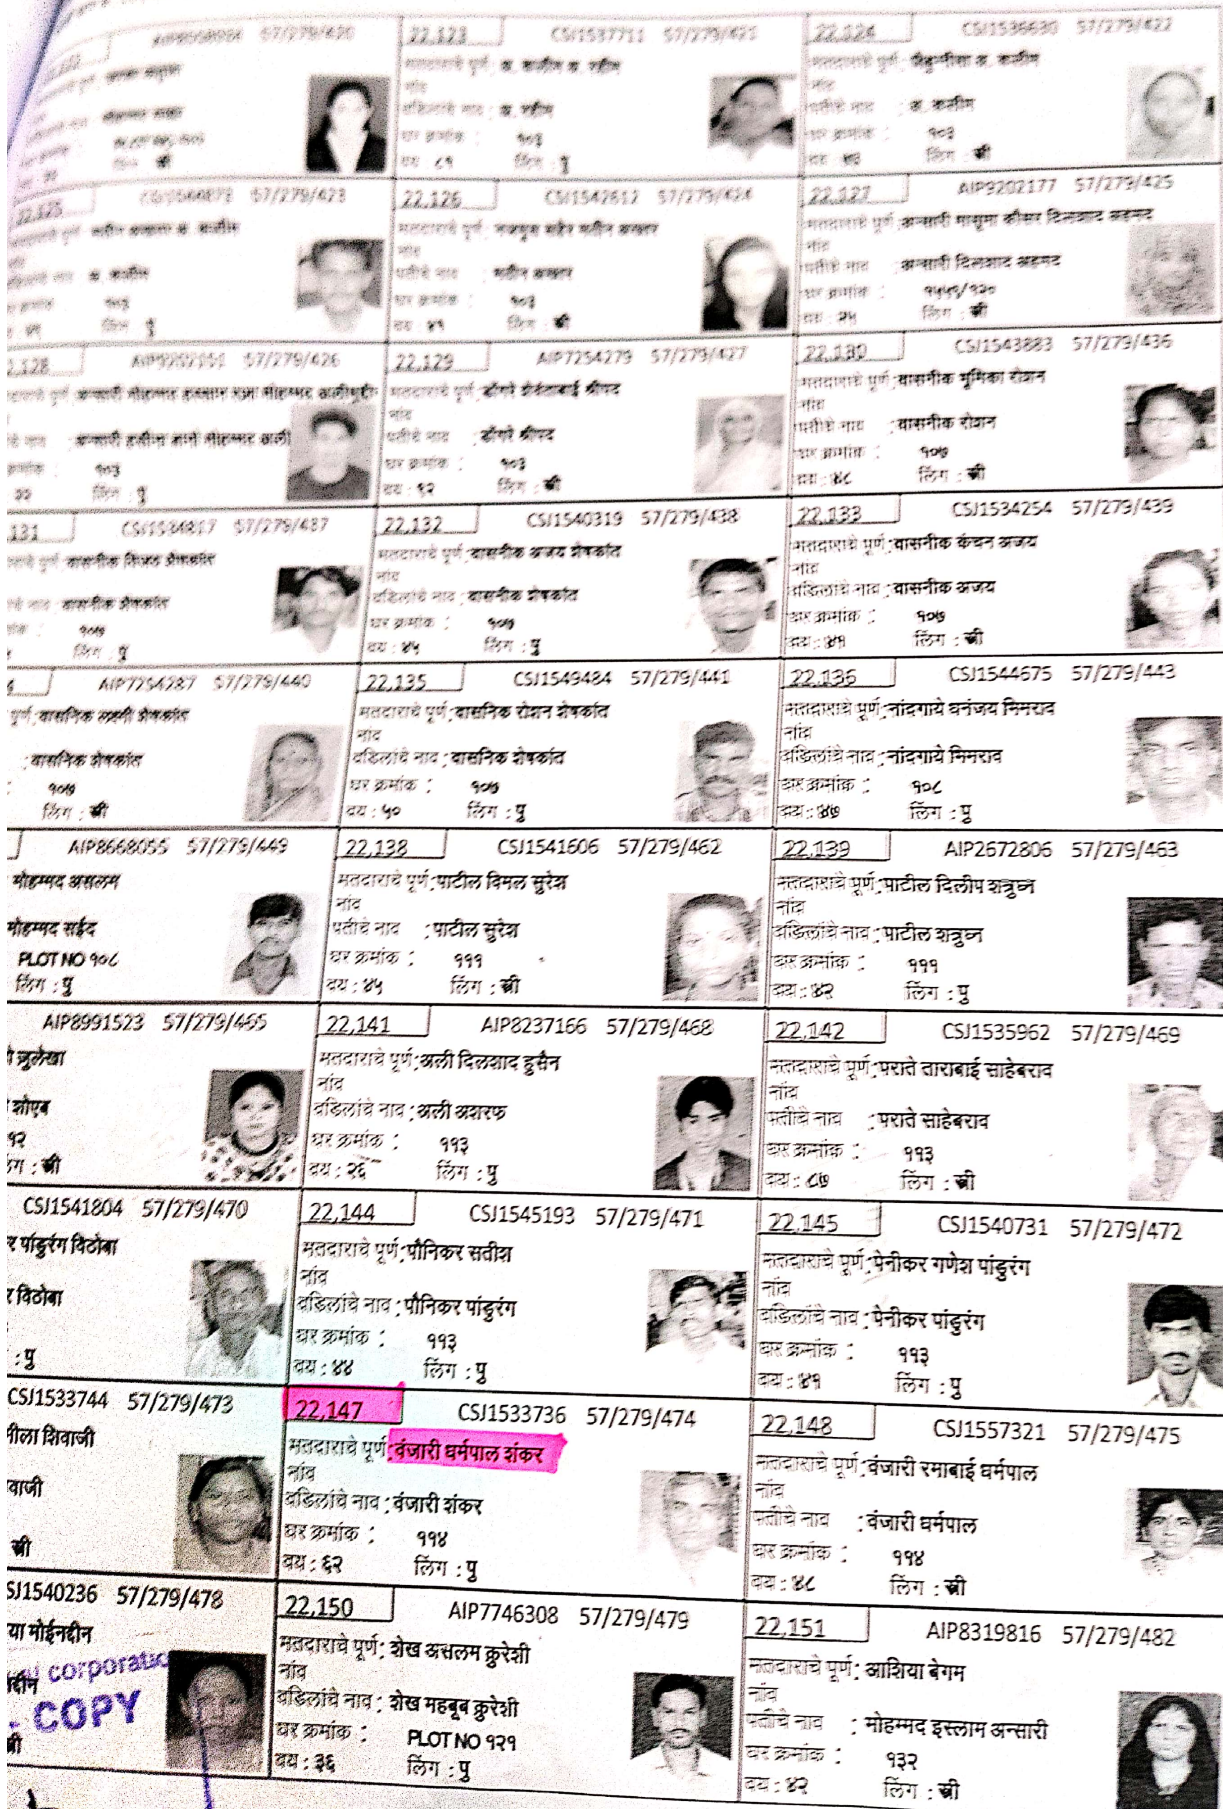 22,123 CSJ1537711 57/279/421
22,124 CSJ1536630 57/279/422
मतदाराचे पूर्ण : अ. कलीम अ. रहीम
नांव
वडिलांचे नाव : अ. रहीम
घर क्रमांक : १०३
लिंग : पु
पतीचे नाव : अ. कलीम
घर क्रमांक : १०३
लिंग : स्त्री
22,125 57/279/423
लिंग : पु
22,126 CSJ1542612 57/279/424
घर क्रमांक : १०३
वय : ४१ लिंग : स्त्री
22,127 AIP9202177 57/279/425
मतदाराचे पूर्ण : अन्सारी मासुमा कौसर दिलशाद अहमद
नांव
पतीचे नाव : अन्सारी दिलशाद अहमद
घर क्रमांक :
वय : २५ लिंग : स्त्री
57/279/426
लिंग : पु
22,129 AIP7254279 57/279/427
पतीचे नाव : डोंगरे श्रीपद
घर क्रमांक : १०३
वय : ९२ लिंग : स्त्री
22,130 CSJ1543883 57/279/436
मतदाराचे पूर्ण : वासनीक भूमिका रोशन
नांव
पतीचे नाव : वासनीक रोशन
घर क्रमांक : १०७
वय : ४८ लिंग : स्त्री
57/279/437
१०७
लिंग : पु
22,132 CSJ1540319 57/279/438
मतदाराचे पूर्ण : वासनीक अजय शेषकांत
नांव
वडिलांचे नाव : वासनीक शेषकांत
घर क्रमांक : १०७
वय : ४५ लिंग : पु
22,133 CSJ1534254 57/279/439
मतदाराचे पूर्ण : वासनीक कंचन अजय
नांव
वडिलांचे नाव : वासनीक अजय
घर क्रमांक : १०७
वय : ४१ लिंग : स्त्री
AIP7254287 57/279/440
पूर्ण : वासनिक लक्ष्मी शेषकांत
: वासनिक शेषकांत
: १०७
लिंग : स्त्री
22,135 CSJ1549484 57/279/441
मतदाराचे पूर्ण : वासनिक रोशन शेषकांत
नांव
वडिलांचे नाव : वासनिक शेषकांत
घर क्रमांक : १०७
वय : ५० लिंग : पु
22,136 CSJ1544675 57/279/443
मतदाराचे पूर्ण : नांदगाये धनंजय भिमराव
नांव
वडिलांचे नाव : नांदगाये भिमराव
घर क्रमांक : १०८
वय : ४७ लिंग : पु
AIP8668055 57/279/449
मोहम्मद असलम
मोहम्मद सईद
PLOT NO १०८
लिंग : पु
22,138 CSJ1541606 57/279/462
मतदाराचे पूर्ण : पाटील विमल सुरेश
नांव
पतीचे नाव : पाटील सुरेश
घर क्रमांक : १११
वय : ४५ लिंग : स्त्री
22,139 AIP2672806 57/279/463
मतदाराचे पूर्ण : पाटील दिलीप शत्रुघ्न
नांव
वडिलांचे नाव : पाटील शत्रुघ्न
घर क्रमांक : १११
वय : ४२ लिंग : पु
AIP8991523 57/279/465
जुलेखा
शोएब
१२
लिंग : स्त्री
22,141 AIP8237166 57/279/468
मतदाराचे पूर्ण : अली दिलशाद हुसैन
नांव
वडिलांचे नाव : अली अशरफ
घर क्रमांक : ११३
वय : २६ लिंग : पु
22,142 CSJ1535962 57/279/469
मतदाराचे पूर्ण : पराते ताराबाई साहेबराव
नांव
पतीचे नाव : पराते साहेबराव
घर क्रमांक : ११३
वय : ८७ लिंग : स्त्री
CSJ1541804 57/279/470
र पांडुरंग विठोबा
र विठोबा
: पु
22,144 CSJ1545193 57/279/471
मतदाराचे पूर्ण : पौनिकर सतीश
नांव
वडिलांचे नाव : पौनिकर पांडुरंग
घर क्रमांक : ११३
वय : ४४ लिंग : पु
22,145 CSJ1540731 57/279/472
मतदाराचे पूर्ण : पेनीकर गणेश पांडुरंग
नांव
वडिलांचे नाव : पेनीकर पांडुरंग
घर क्रमांक : ११३
वय : ४१ लिंग : पु
CSJ1533744 57/279/473
मीला शिवाजी
वाजी
स्त्री
22,147 CSJ1533736 57/279/474
मतदाराचे पूर्ण : वंजारी धर्मपाल शंकर
नांव
वडिलांचे नाव : वंजारी शंकर
घर क्रमांक : ११४
वय : ६२ लिंग : पु
22,148 CSJ1557321 57/279/475
मतदाराचे पूर्ण : वंजारी रमाबाई धर्मपाल
नांव
पतीचे नाव : वंजारी धर्मपाल
घर क्रमांक : ११४
वय : ४८ लिंग : स्त्री
SJ1540236 57/279/478
या मोईनद्दीन
द्दीन
corporatio
COPY
22,150 AIP7746308 57/279/479
मतदाराचे पूर्ण : शेख असलम कुरेशी
नांव
वडिलांचे नाव : शेख महबूब कुरेशी
घर क्रमांक : PLOT NO १२१
वय : ३६ लिंग : पु
22,151 AIP8319816 57/279/482
मतदाराचे पूर्ण : आशिया बेगम
नांव
पतीचे नाव : मोहम्मद इस्लाम अन्सारी
घर क्रमांक : १३२
वय : ४२ लिंग : स्त्री